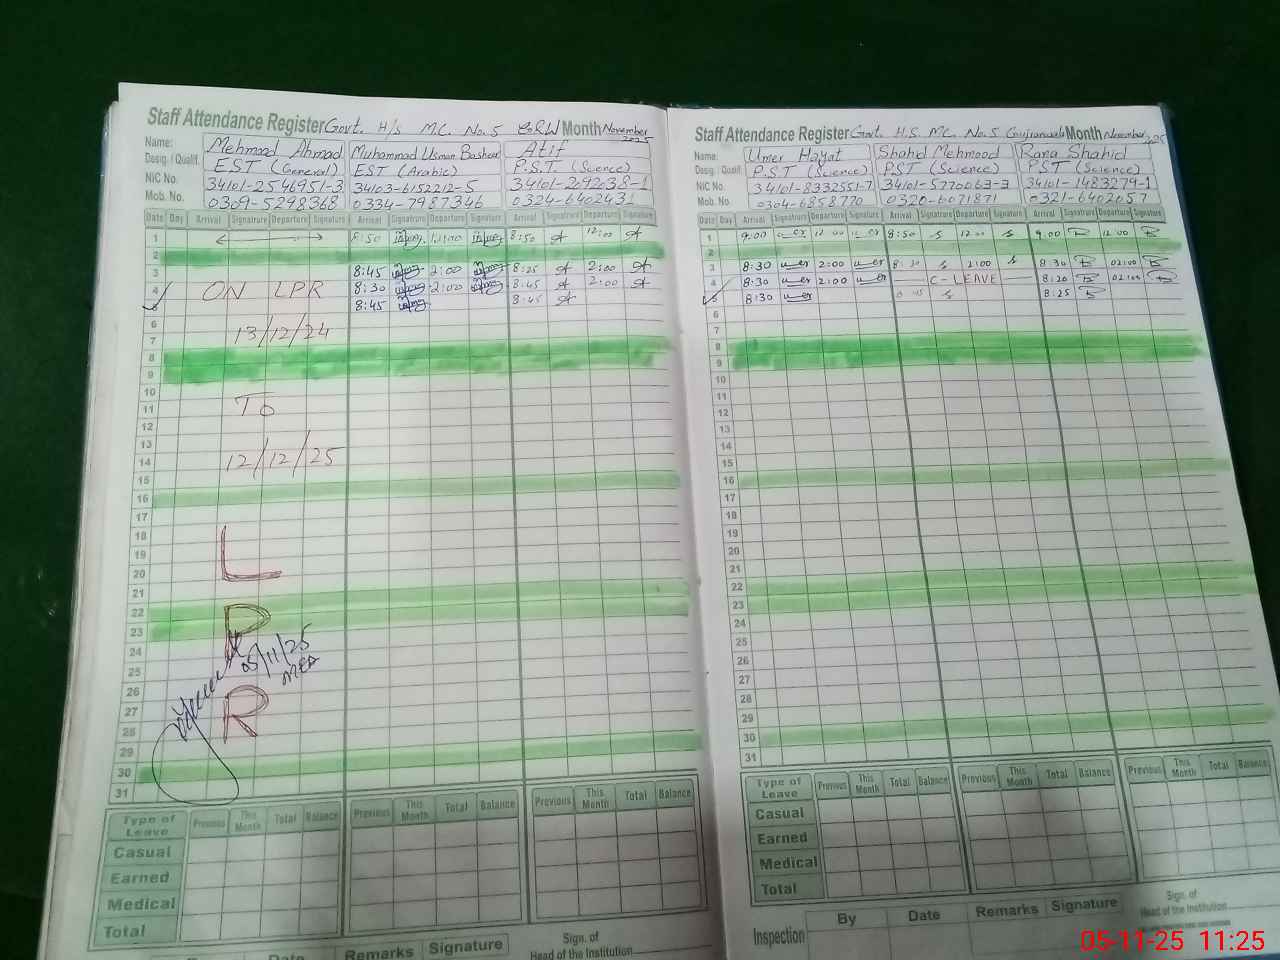 Staff Attendance Register Govt. H/S M.C. No. 5 GRW Month November 2025
Name: Mehmood Ahmad Muhammad Usman Bashear Atif
Desig. / Qualif. EST (General) EST (Arabic) P.S.T. (Science)
NIC No. 34101-2546951-3 34103-6152212-5 34101-2692038-1
Mob. No. 0309-5298368 0334-7987346 0324-6402431
Date Day Arrival Signature Departure Signature Arrival Signature Departure Signature Arrival Signature Departure Signature
1 8:50 8:50 12:00
2
3 8:45 2:00 8:25 2:00
4 ON LPR 8:30 2:00 8:45 2:00
5 8:45 8:45
6 13/12/24
7
8
9
10
11 To
12
13
14 12/12/25
15
16
17
18
19 L
20
21
22
23 P
24 05/11/25
25 MEA
26
27 R
28
29
30
31
Type of Leave Previous This Month Total Balance Previous This Month Total Balance Previous This Month Total Balance
Casual
Earned
Medical
Total
By Date Remarks Signature Sign. of
Head of the Institution
Staff Attendance Register Govt. H.S. MC. No. 5 Gujranwala Month November, 25
Name: Umer Hayat Shahid Mehmood Rana Shahid
Desig. / Qualif. P.S.T (Science) PST (Science) PST (Science)
NIC No. 34101-8332551-7 34101-5770063-3 34101-1483279-1
Mob. No. 0304-6858770 0320-6071871 0321-6402057
Date Day Arrival Signature Departure Signature Arrival Signature Departure Signature Arrival Signature Departure Signature
1 9:00 umer 12:00 umer 8:50 12:00 9:00 12:00
2
3 8:30 umer 2:00 umer 8:30 2:00 8:30 02:00
4 8:30 umer 2:00 umer C-LEAVE 8:20 02:00
5 8:30 umer 8:25
6
7
8
9
10
11
12
13
14
15
16
17
18
19
20
21
22
23
24
25
26
27
28
29
30
31
Type of Leave Previous This Month Total Balance Previous This Month Total Balance Previous This Month Total Balance
Casual
Earned
Medical
Total
Inspection By Date Remarks Signature Sign. of
Head of the Institution
05-11-25 11:25